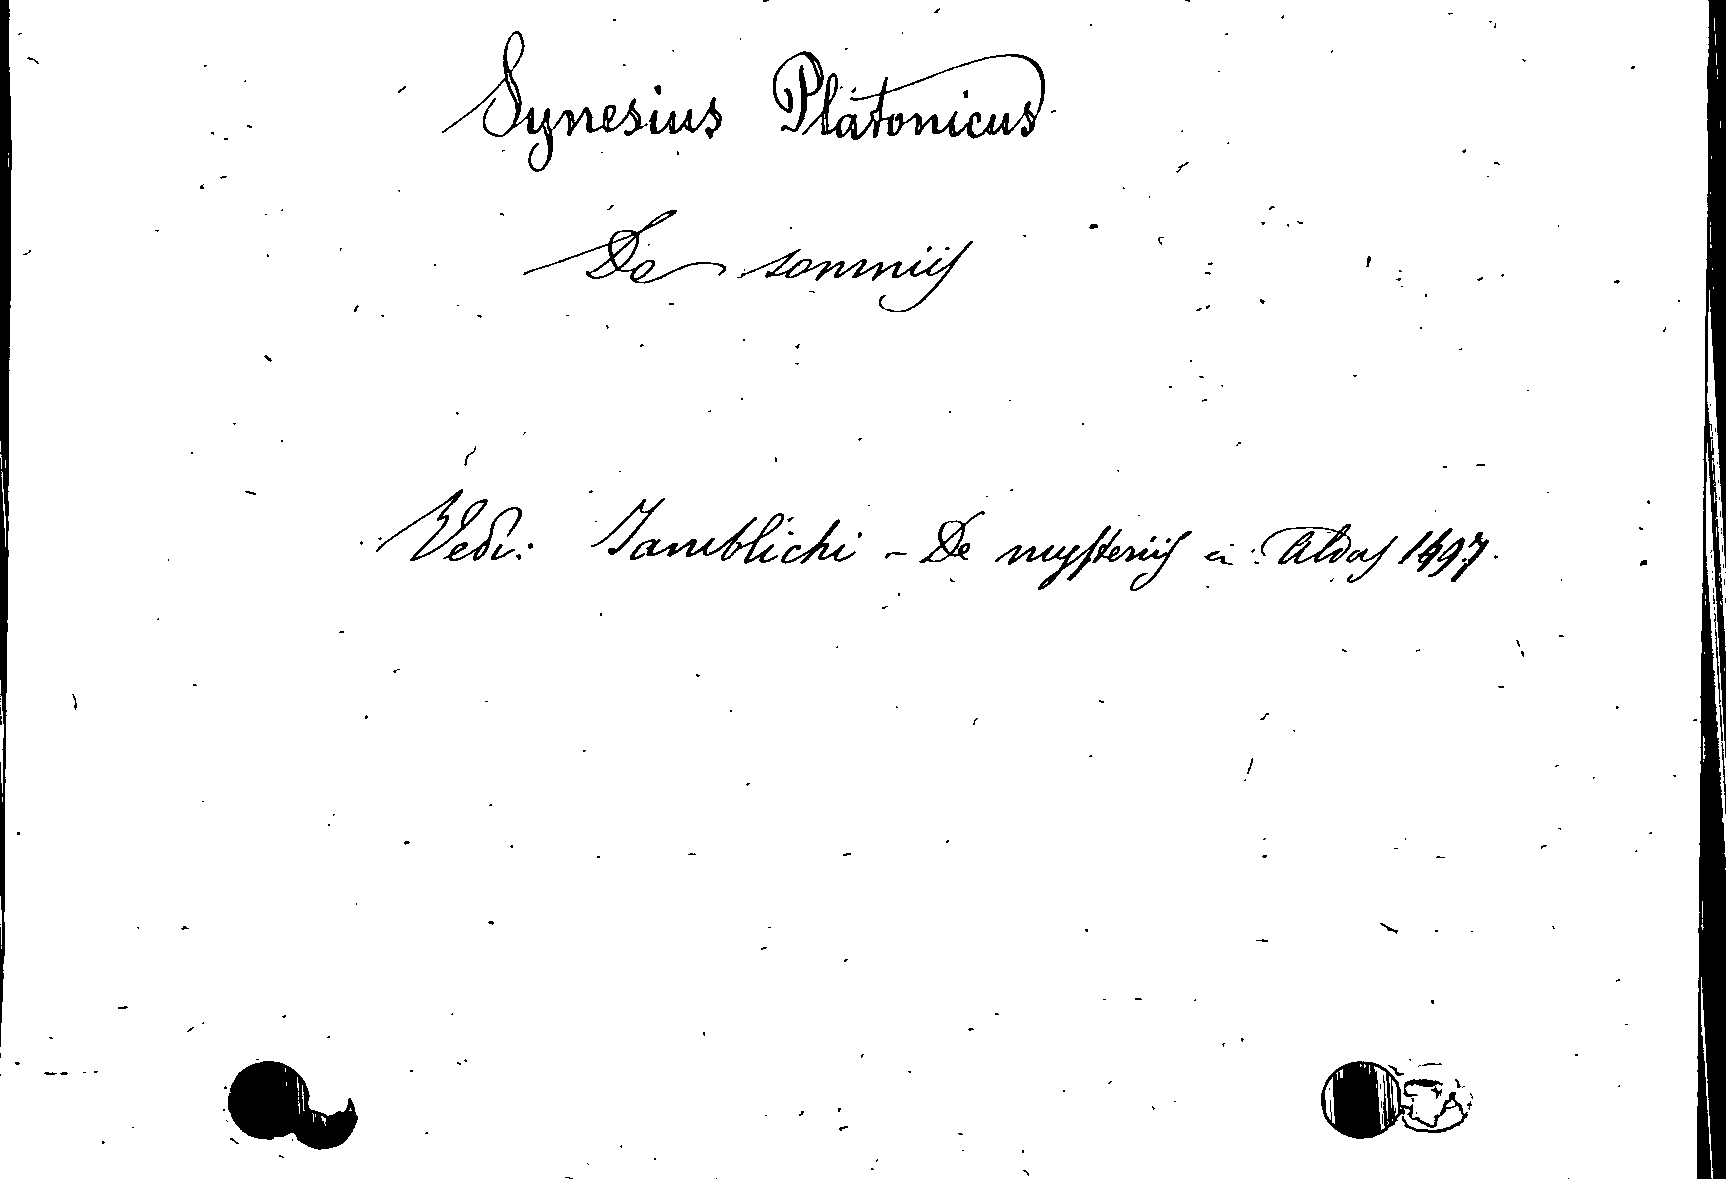 Synesius Platonicus
De somniis
Vedi: Jamblichi - De mysteriis in Aldas 1497.